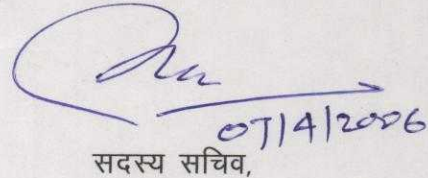 07/4/2006
सदस्य सचिव,